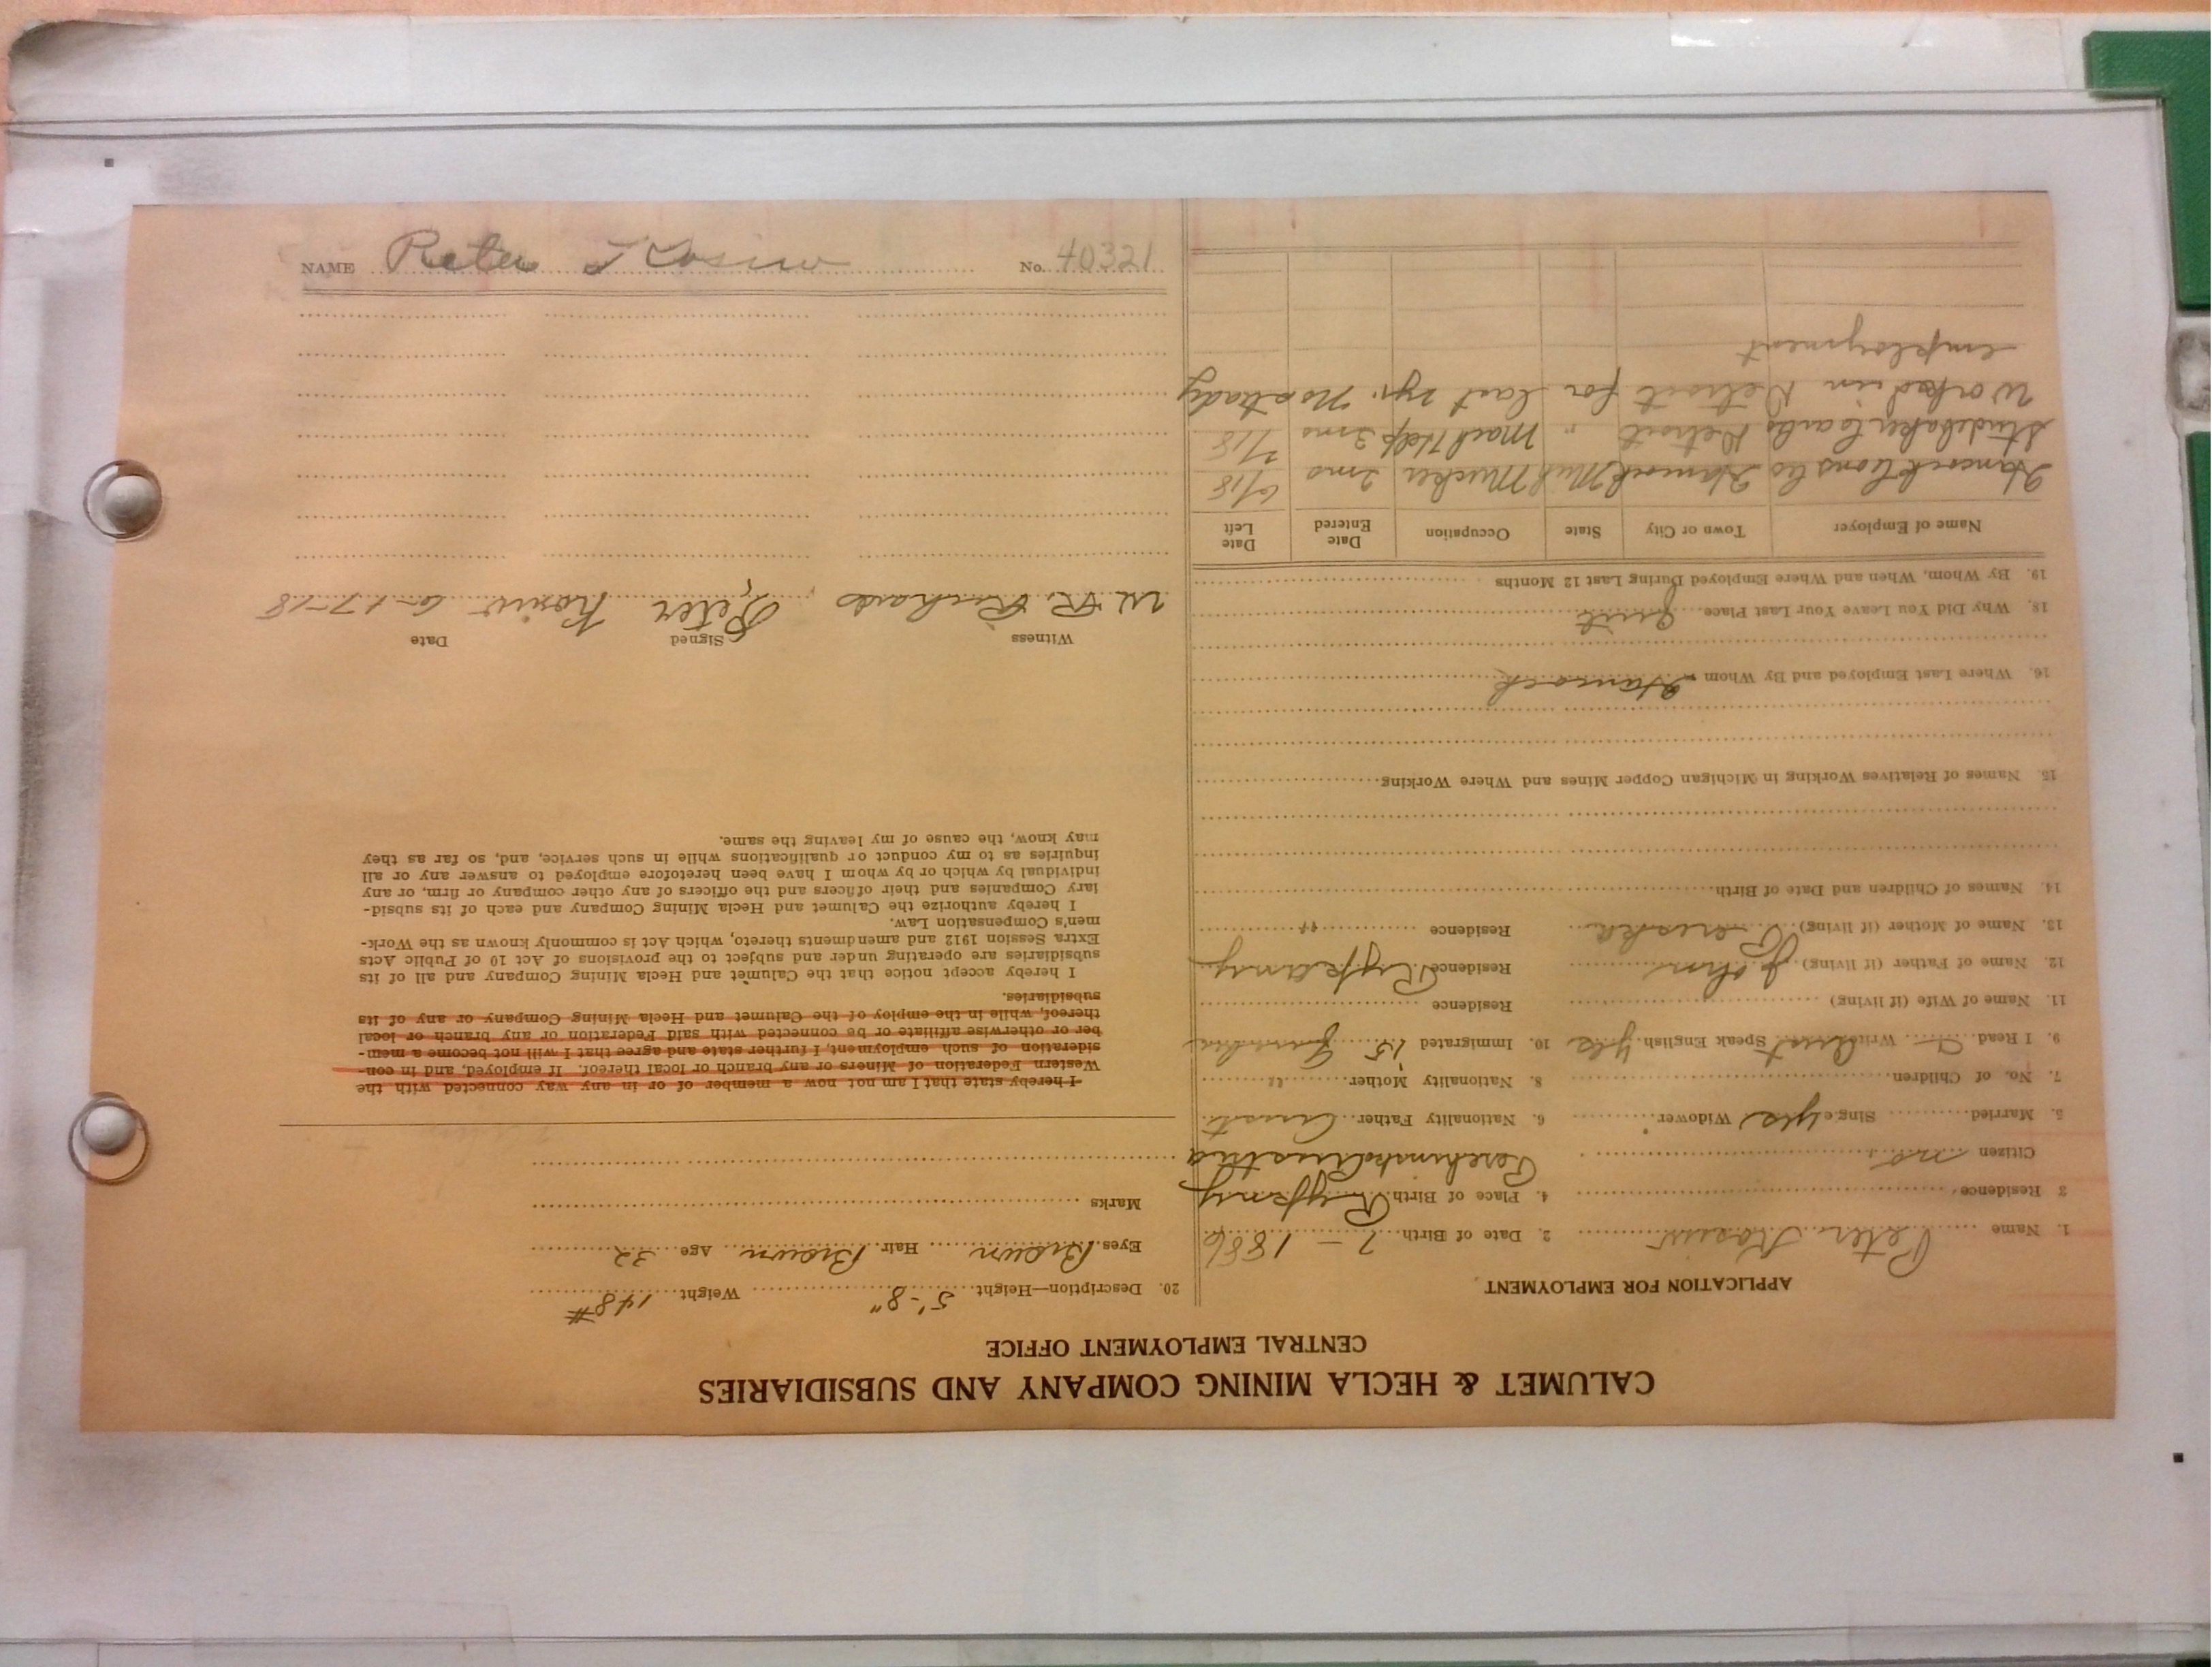 CALUMET & HECLA MINING COMPANY AND SUBSIDIARIES
CENTRAL EMPLOYMENT OFFICE
APPLICATION FOR EMPLOYMENT
1. Name Peter Kosiw 2. Date of Birth ? - 1886
3 Residence 4. Place of Birth
Citizen no Austria
5. Married Single yes Widower 6. Nationality Father Aust.
7. No. of Children 8. Nationality Mother "
9. I Read Write Aust Speak English yes 10. Immigrated 15
11. Name of Wife (if living) Residence
12. Name of Father (if living) John Residence
13. Name of Mother (if living) Residence "
14. Names of Children and Date of Birth
15. Names of Relatives Working in Michigan Copper Mines and Where Working
16. Where Last Employed and By Whom Hancock
18. Why Did You Leave Your Last Place quit
19. By Whom, When and Where Employed During Last 12 Months
Name of Employer Town or City State Occupation Date Entered Date Left
Hancock Cons Co Hancock Mich Mucker 2 mo 6/18
Studebaker Detroit " Mach Help 3 mo
Worked in Detroit for last 2 yr. No steady
employment
20. Description—Height 5'-8" Weight 148#
Eyes Brown Hair Brown Age 32
Marks
I hereby state that I am not now a member of or in any way connected with the
Western Federation of Miners or any branch or local thereof. If employed, and in con-
sideration of such employment, I further state and agree that I will not become a mem-
ber or otherwise affiliate or be connected with said Federation or any branch or local
thereof, while in the employ of the Calumet and Hecla Mining Company or any of its
subsidiaries.
I hereby accept notice that the Calumet and Hecla Mining Company and all of its
subsidiaries are operating under and subject to the provisions of Act 10 of Public Acts
Extra Session 1912 and amendments thereto, which Act is commonly known as the Work-
men's Compensation Law.
I hereby authorize the Calumet and Hecla Mining Company and each of its subsid-
iary Companies and their officers and the officers of any other company or firm, or any
individual by which or by whom I have been heretofore employed to answer any or all
inquiries as to my conduct or qualifications while in such service, and, so far as they
may know, the cause of my leaving the same.
Witness Signed Date
W. R. Richards Peter Kosiw 6-17-18
NAME Peter Kosiw No. 40321